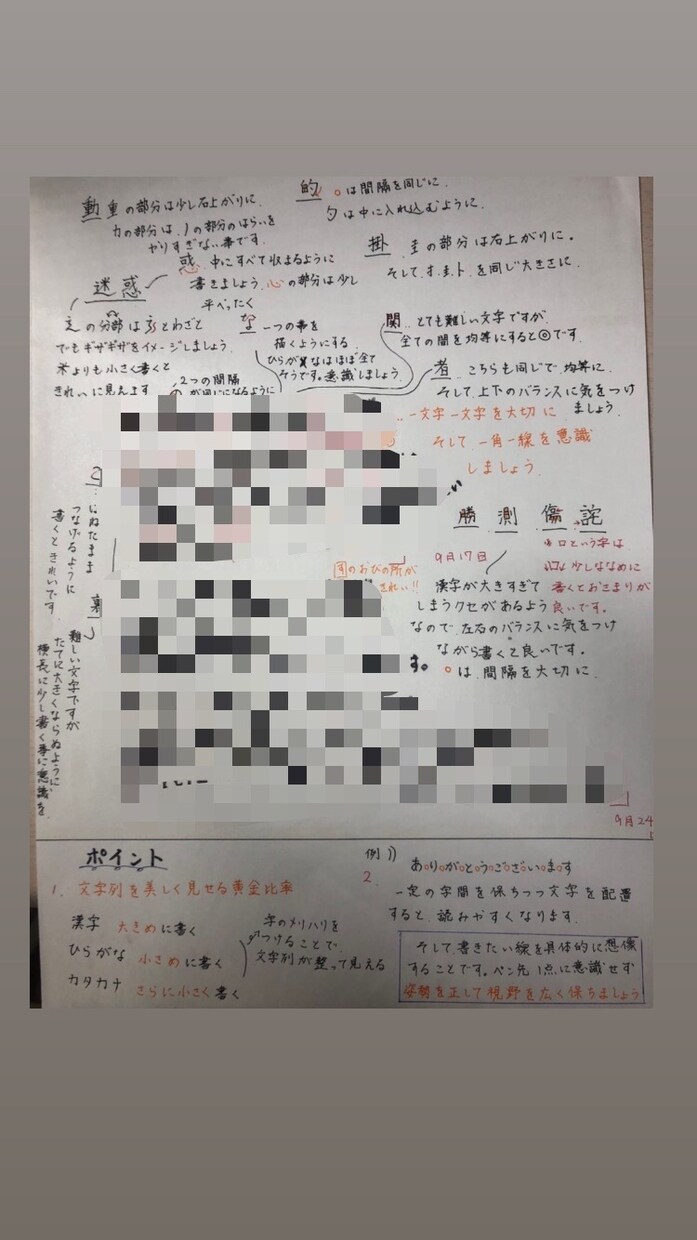 動 重の部分は少し右上がりに.
カの部分は.ノの部分のはらいを
やりすぎない事です.
的 oは間隔を同じに.
勹は中に入れ込むように.
掛 圭の部分は右上がりに.
そして.扌.圭.卜.を同じ大きさに.
迷惑
惑. 中にすべて収まるように
書きましょう.心の部分は少し
平べったく
辶の部分はろとわざと
でもギザギザをイメージしましょう.
米よりも小さく書くと
きれいに見えます
な 一つの布を
描くようにする.
ひらが質なはほぼ全て
そうです.意識しましょう.
2つの間隔
が同じになるように
関.. とても難しい文字ですが
全ての間を均等にすると◎です.
者.. こちらも同じで.均等に.
そして上下のバランスに気をつけ
ましょう.
..一文字一文字を大切に
そして.一角一線を意識
しましょう.
勝 測 傷 詫
9月17日
漢字が大きすぎて
しまうクセがあるよう
なので.左右のバランスに気をつけ
ながら書くと良いです.
oは.間隔を大切に.
口という字は
少しななめに
書くとおさまりが
良いです.
のおびの所が
きれい!!
す。
つなげるように
書くときれいです.
裏
難しい文字ですが
たてに大きくならぬように.
横長に少し書く事に意識を.
9月24
ポイント
1. 文字列を美しく見せる黄金比率
漢字 大きめに書く
ひらがな 小さめに書く
カタカナ さらに小さく書く
字のメリハリを
つけることで.
文字列が整って見える
例))
2. ありがとうございます
一定の字間を保ちつつ文字を配置
すると.読みやすくなります.
そして書きたい線を具体的に想像
することです。ペン先1点に意識せず
姿勢を正して視野を広く保ちましょう